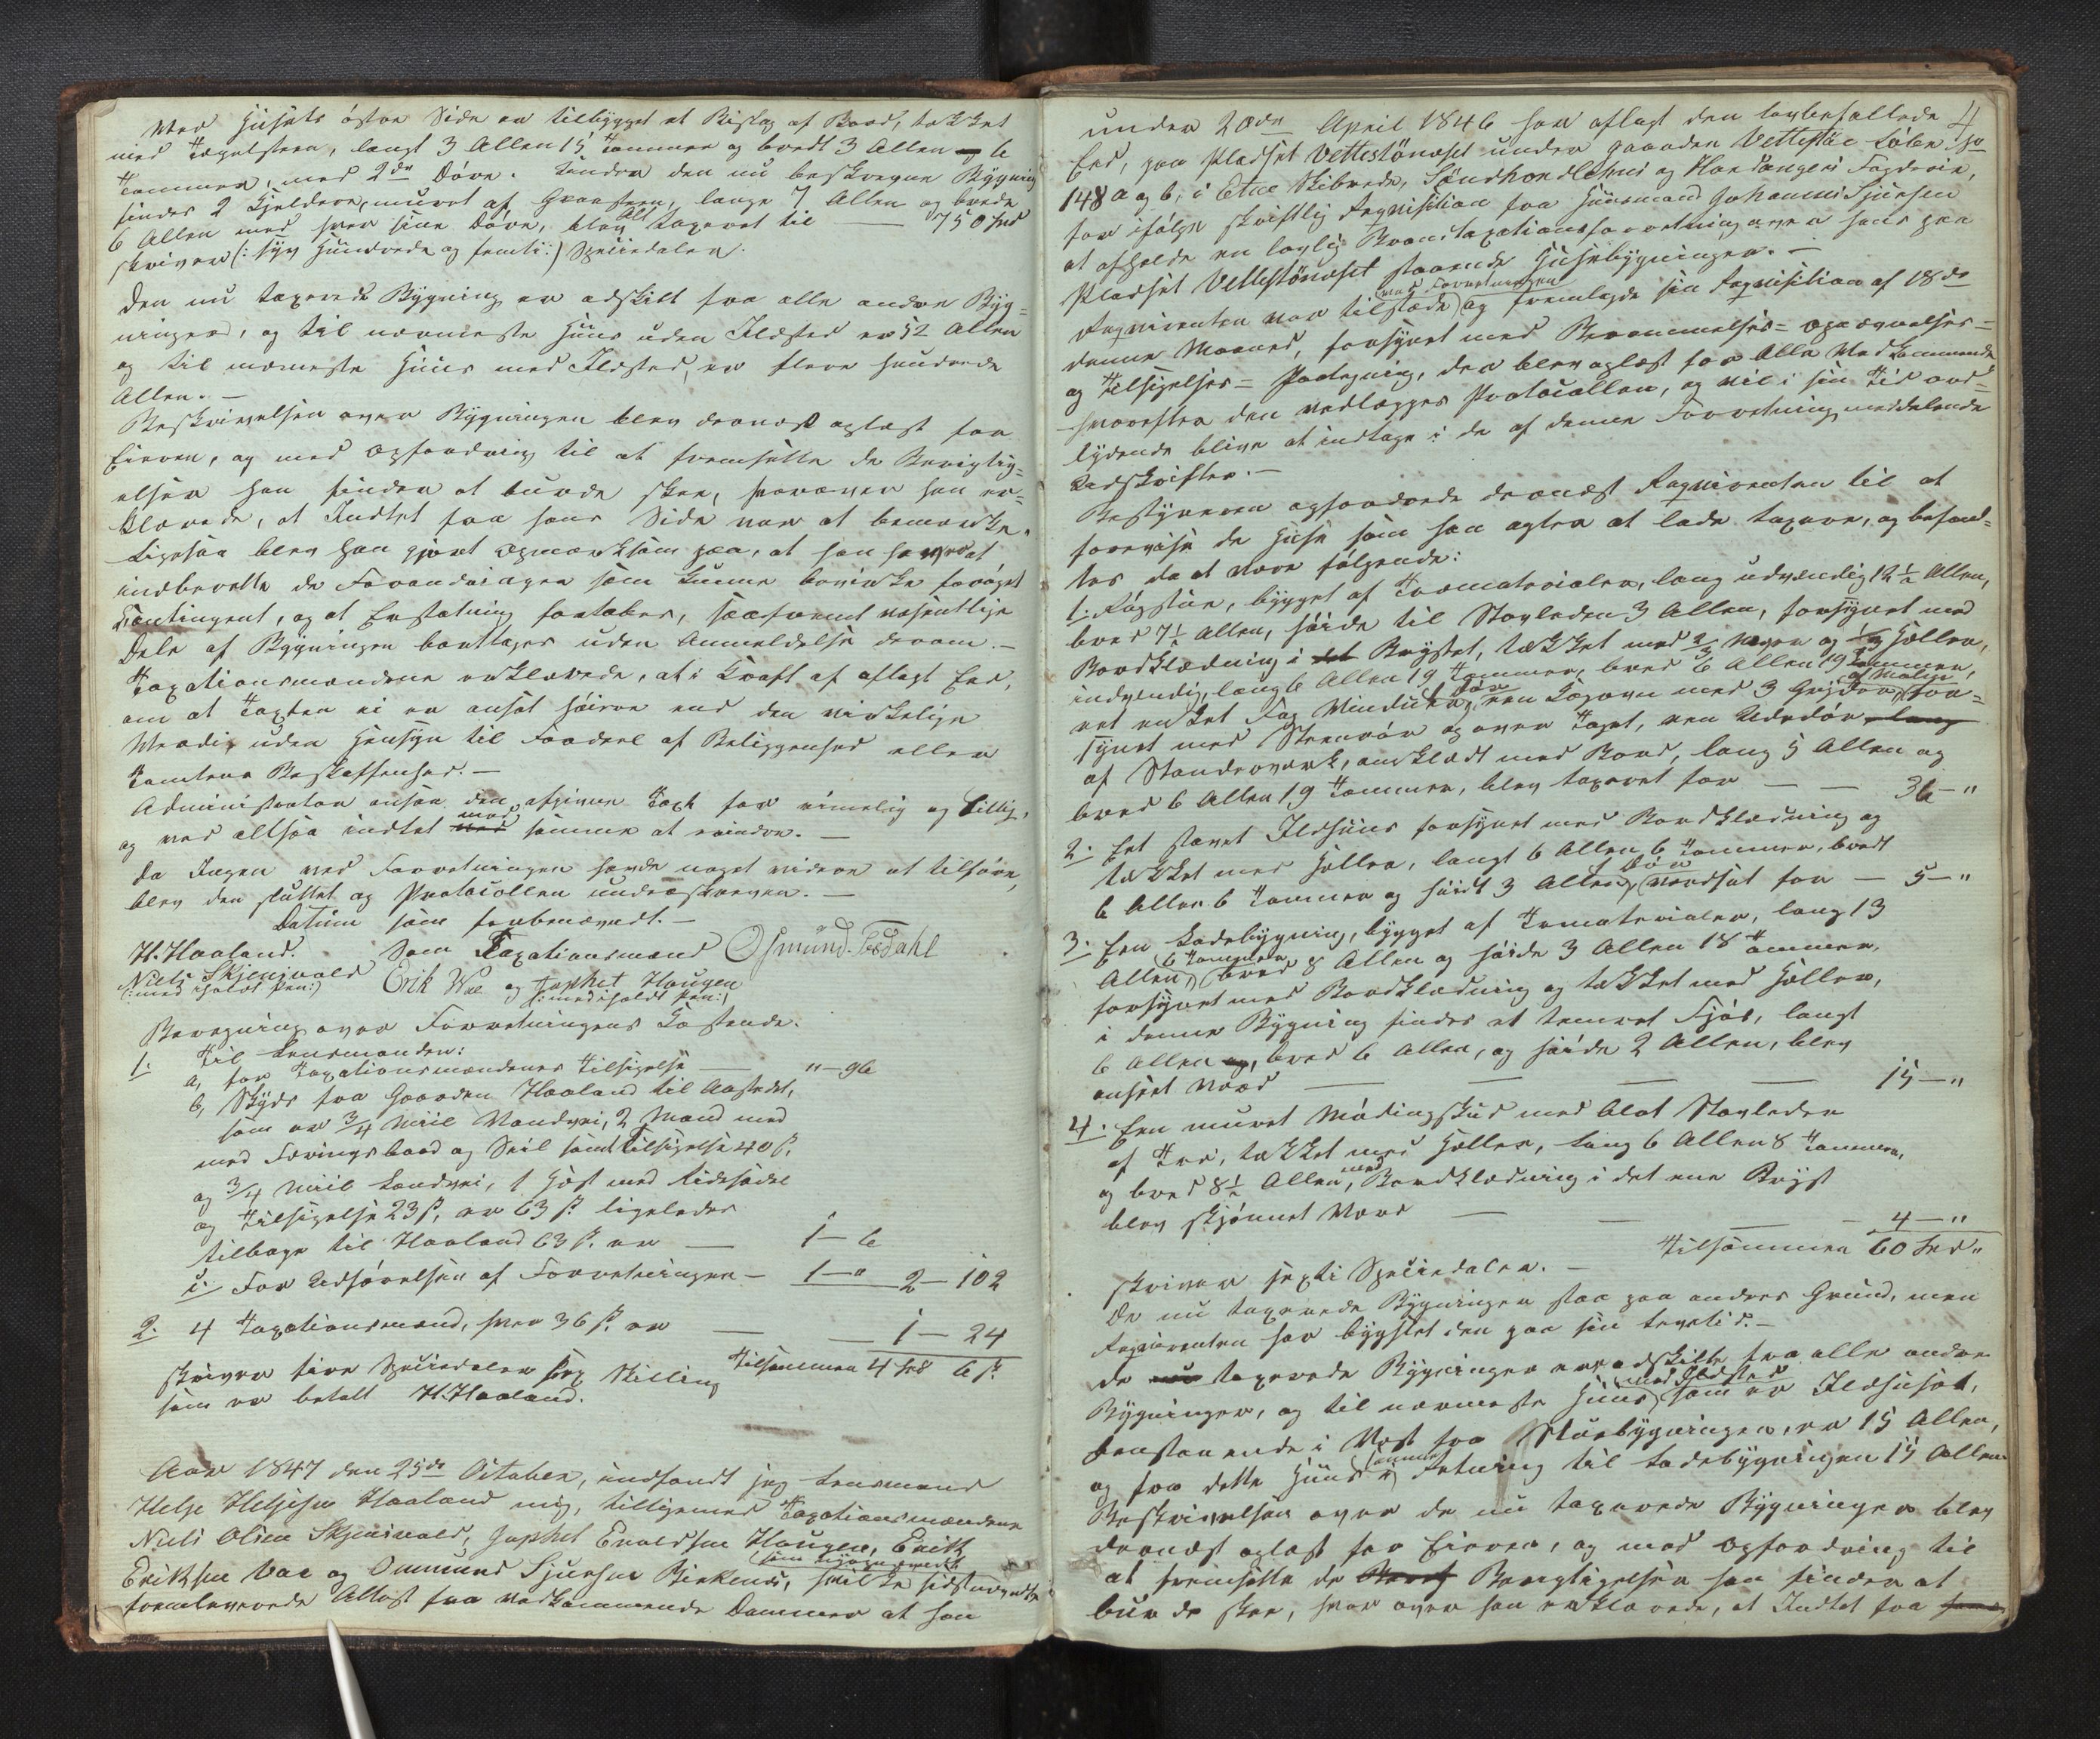 Med Husets østre Side er tilbygget et Bislag af Bord, tækket
med Tegelsteen, langt 3 Allen 15 Tommer og bredt 3 Allen 6
Tommer, med 2de Døre. Under den nu beskrevne Bygning
findes 2 Kjeldere, muret af Graasteen, lange 7 Allen og brede
6 Allen med hver sine Døre, blev Alt taxeret til — 750 Spd
skriver (: syv Hundrede og femti :) Speciedaler.
Den nu taxerede Bygning er adskilt fra alle andre Byg=
ninger, og til nærmeste Huus uden Ildsted er 52 Allen
og til nærmeste Huus med Ildsted, er flere hundrede
Allen. —
Beskrivelsen over Bygningen blev dernæst oplæst for
Eieren, og med Opfordring til at fremsætte de Berigtig=
elser han finder at burde skee, hvorover han er=
klærede, at Indtet fra hans Side var at bemærke.
Ligesaa blev han gjort opmærksom paa, at han har at
indberette de Forandringer som kunne bevirke forøget
Contingent, og at Erstatning fortabes, saafremt væsentlige
Dele af Bygningen borttages uden Anmeldelse derom. —
Taxationsmændene erklærede, at i Kraft af aflagt Eed,
om at Taxten ei er ansat høiere end den virkelige
Værdie uden Hensyn til Fordeel af Beliggenhed eller
Tomtens Beskaffenhed. —
Administrator ansaa den afgivne Taxt for rimelig og billig,
og ved altsaa indtet mod samme at erindre. —
Da Ingen ved Forretningen havde noget videre at tilføre,
blev den sluttet og Protocollen underskreven. —
Datum som forbenævndt. —
H. Haaland. Som Taxationsmænd Osmund Fosdahl
Niels Skjenivald Erik Wae og Japhet Haugen
(: med iholdt Pen :) (: med iholdt Pen :)
Beregning over Forretningens Kostende.
1. Til Lensmanden:
a, for Taxationsmændenes Tilsigelse — " — 96
b, Skyds fra Gaarden Haaland til Aastedet,
som er 3/4 Miil Vandvei, 2 Mand med
med Færingsbaad og Seil samt Tilsigelse 40 ß,
og 3/4 Miil Landvei, 1 Hest med Ridesadel
og Tilsigelse 23 ß, er 63 ß ligeledes
tilbage til Haaland 63 ß er — 1 — 6
c. For Udførelsen af Forretningen — 1 — " 2 — 102
2. 4 Taxationsmænd, hver 36 ß. er — — 1 — 24
Tilsammen 4 Spd 6 ß.
skriver fire Speciedaler sex Skilling
som er betalt H. Haaland.
Aar 1847 den 25de October, indfandt jeg Lensmand
Helje Heljesen Haaland mig, tilligemed Taxationsmændene
Niels Olsen Skjenivald, Japhet Evaldsen Haugen, Erik
Eriksen Vae og Ommund Sjursen Birkenes, hvilke sidstnævndte
fremleverede Attest fra vedkommende Dommer at han
4
under 20de April 1846 har aflagt den lovbefallede
Eed, paa Pladset Vettestønæset under Gaarden Vettestøe Løbe No
148 a og b, i Etne Skibrede, Søndhordlehns og Hardangers Fogderie,
for ifølge skriftlig Reqvisition fra Huusmand Johannes Sjursen
at afholde en lovlig Brandtaxationsforretning over hans paa
Pladset Vettestønæset staaende Husebygninger. —
Reqvirenten var tilstæde (ved Forretningen) og fremlagde sin Reqvisition af 18de
denne Maaned, forsynet med Berammelses= Opnævnelses=
og Tilsigelses= Paategning, der blev oplæst for Alle Vedkommende
hvorefter den vedlægges Protocollen, og vil i sin Tid ord=
lydende blive at indtage i de af denne Forretning meddelende
Udskrifter. —
Bestyreren opfordrede dernæst Reqvirenten til at
forevise de Huse som han agter at lade taxere, og befand=
tes da at være følgende:
1. Røgstue, bygget af Træmaterialer, lang udvendig 12 1/2 Allen,
bred 7 1/2 Allen, høide til Stavleden 3 Allen, forsynet med
Bordklædning i Brystet, tækket med 2/3 Næver og 1/3 Heller,
indvendig, lang 6 Allen 19 Tommer, bred 6 Allen 19 Tommer,
et enkelt Fag Vinduer, Dør, en Bagovn med 3 Gryder af Malm for=
synet med Steenrør og over Taget, een Udedør
af Standerværk, omklædt med Bord, lang 5 Allen og
bred 6 Allen 19 Tommer, blev taxeret for — — 36 — "
2. Eet stavet Ildhuus forsynet med Bordklædning og
tækket med Heller, langt 6 Allen 6 Tommer, bredt
6 Allen 6 Tommer og høit 3 Allen, 1 Dør, værdsat for — 5 — "
3. Een Ladebygning, bygget af Træmaterialer, lang 13
Allen 6 Tommer, bred 8 Allen og høide 3 Allen 18 Tommer,
forsynet med Bordklædning og tækket med Heller,
i denne Bygning findes et tømret Fjøs, langt
6 Allen, bred 6 Allen, og høide 2 Allen, blev
anseet Værd — — — — 15 — "
4. Een muret Mødingskud med blot Stavleder
af Træ, tækket med Heller, lang 6 Allen 8 Tommer,
og bred 8 1/2 Allen, med Bordklædning i det ene Bryst
blev skjønnet Værd — — — — 4 — "
Tilsammen 60 Spd "
skriver sexti Speciedaler. —
De nu taxerede Bygninger staa paa andres Grund, men
Reqvirenten har bygslet den paa sin Levetid. —
De taxerede Bygninger ere adskilte fra alle andre
Bygninger, og til nærmeste Huus med Ildsted som er Ildhuset,
henstaaende i Vest fra Stuebygningen, er 15 Allen,
og fra dette Huus i samme Retning til Ladebygningen 15 Allen
Beskrivelsen over de nu taxerede Bygninger blev
dernæst oplæst for Eieren, og med Opfordring til
at fremsætte de Berigtigelser han finder at
burde skee, hvorover han erklærede, at Indtet fra